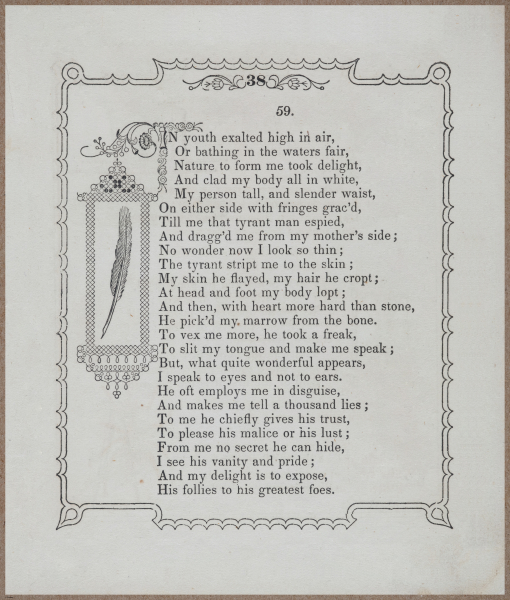 38
59.
IN youth exalted high in air,
Or bathing in the waters fair,
Nature to form me took delight,
And clad my body all in white,
My person tall, and slender waist,
On either side with fringes grac'd,
Till me that tyrant man espied,
And dragg'd me from my mother's side;
No wonder now I look so thin;
The tyrant stript me to the skin;
My skin he flayed, my hair he cropt;
At head and foot my body lopt;
And then, with heart more hard than stone,
He pick'd my marrow from the bone.
To vex me more, he took a freak,
To slit my tongue and make me speak;
But, what quite wonderful appears,
I speak to eyes and not to ears.
He oft employs me in disguise,
And makes me tell a thousand lies;
To me he chiefly gives his trust,
To please his malice or his lust;
From me no secret he can hide,
I see his vanity and pride;
And my delight is to expose,
His follies to his greatest foes.